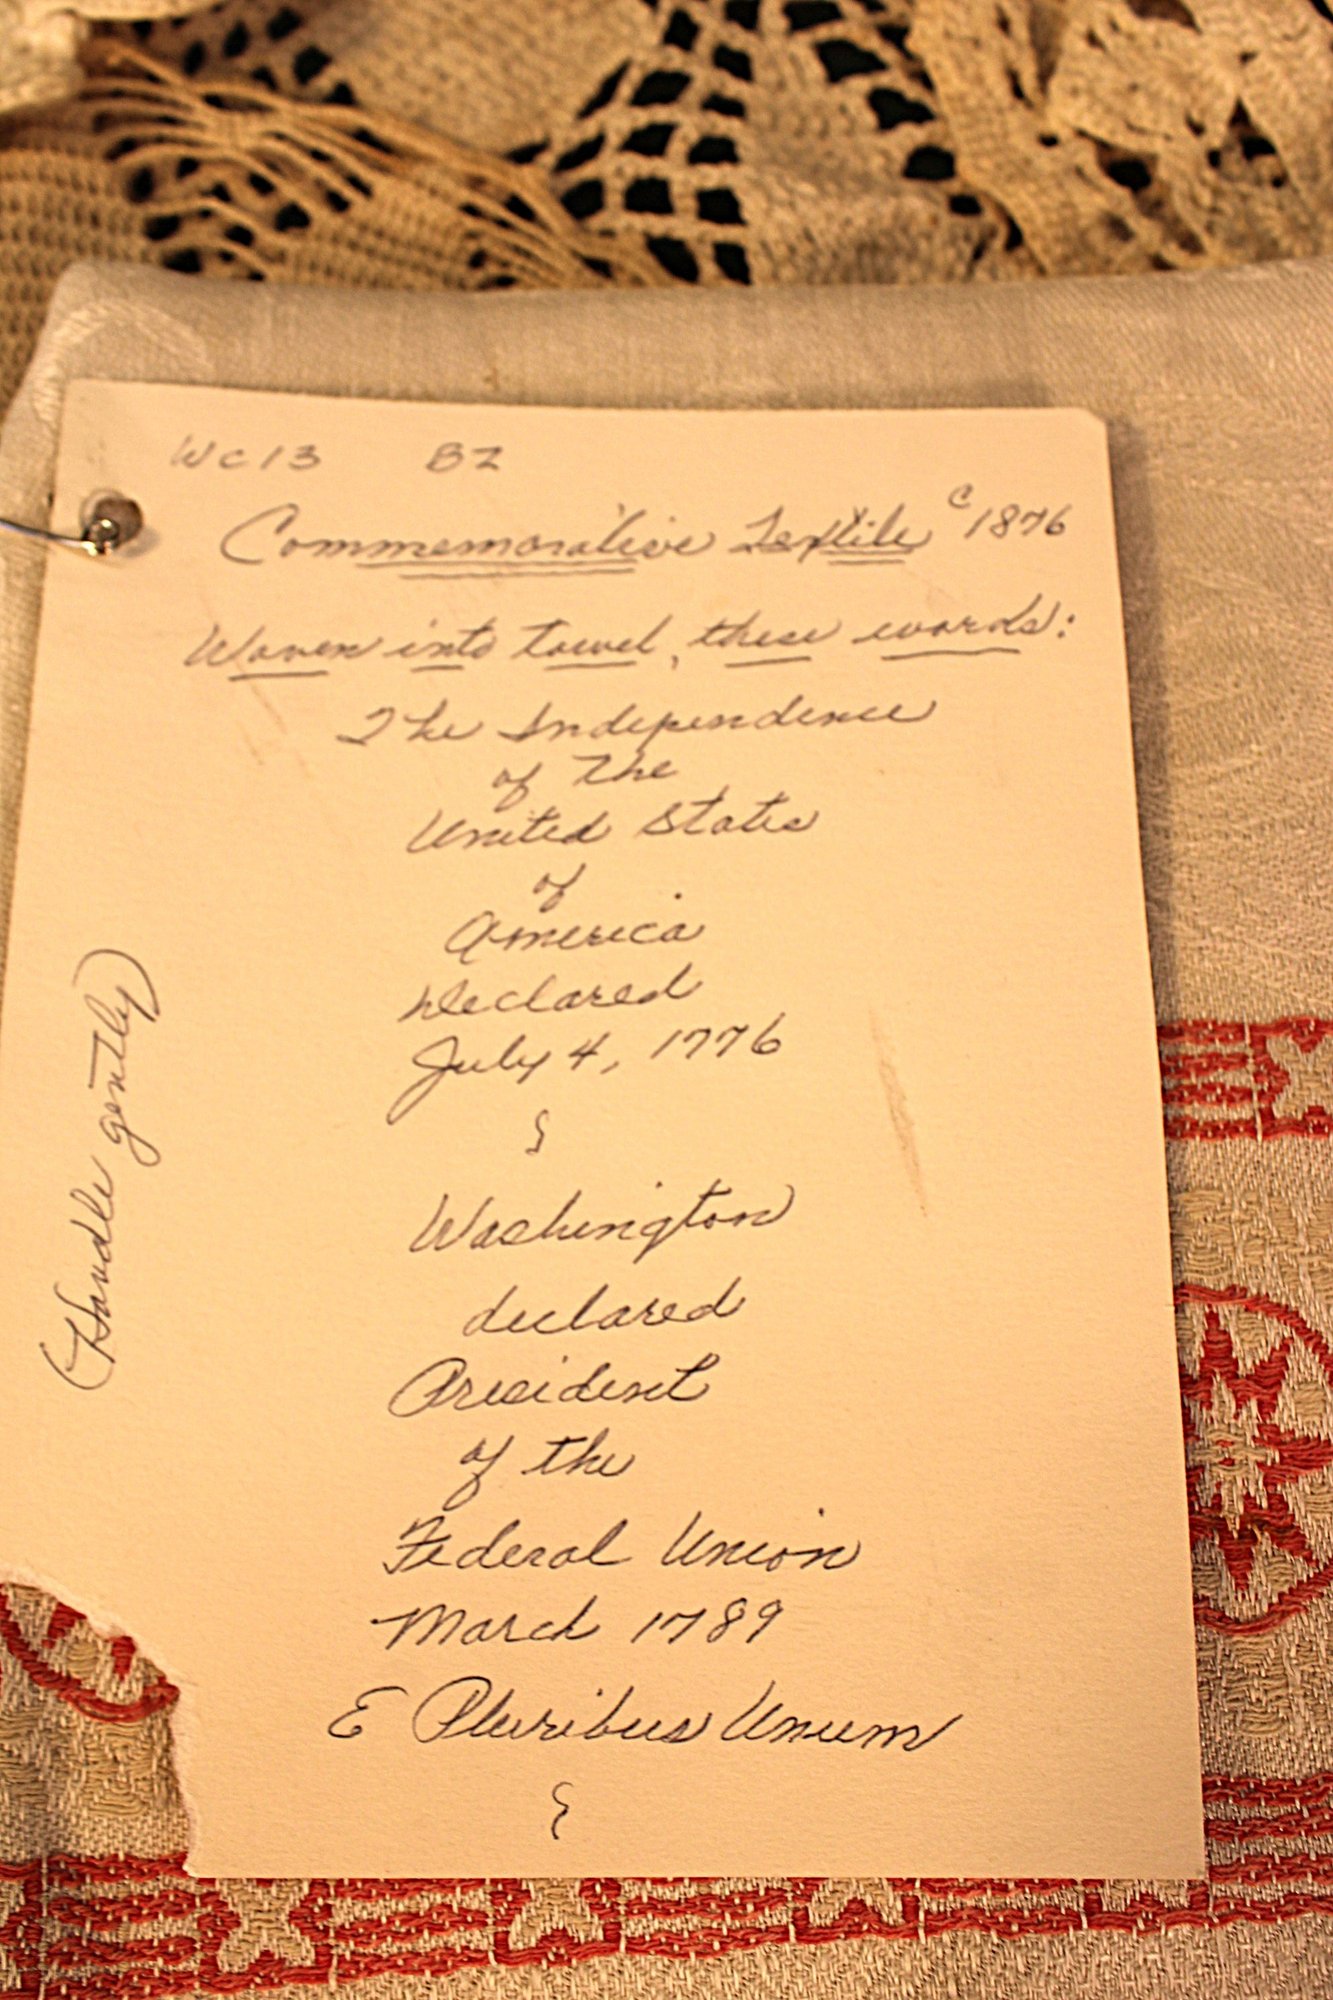 WC13 BZ
Commemorative Textile c 1876
Woven into towel, these words:
The Independence
of the
United States
of
America
Declared
July 4, 1776
Washington
declared
President
of the
Federal Union
March 1789
E Pluribus Unum
(Handle gently)